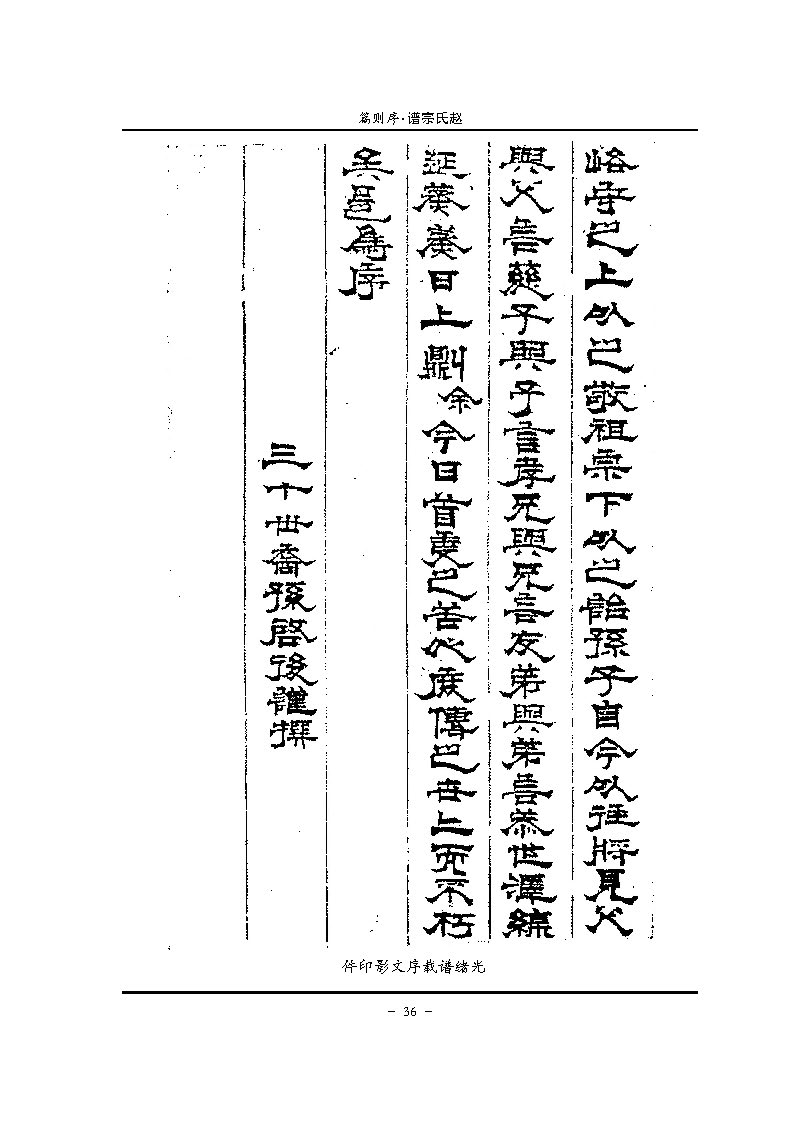 篇则序·谱宗氏赵
上以巳敬祖宗下以巳詒孫子自今以往將見父
與父言慈子與子言孝兄與兄言友弟與弟言恭世澤綿
延 日上 余今日首 巳苦心 傳巳世上而不朽
矣 爲序
三十世裔孫啓後謹撰
件印影文序载谱绪光
- 36 -